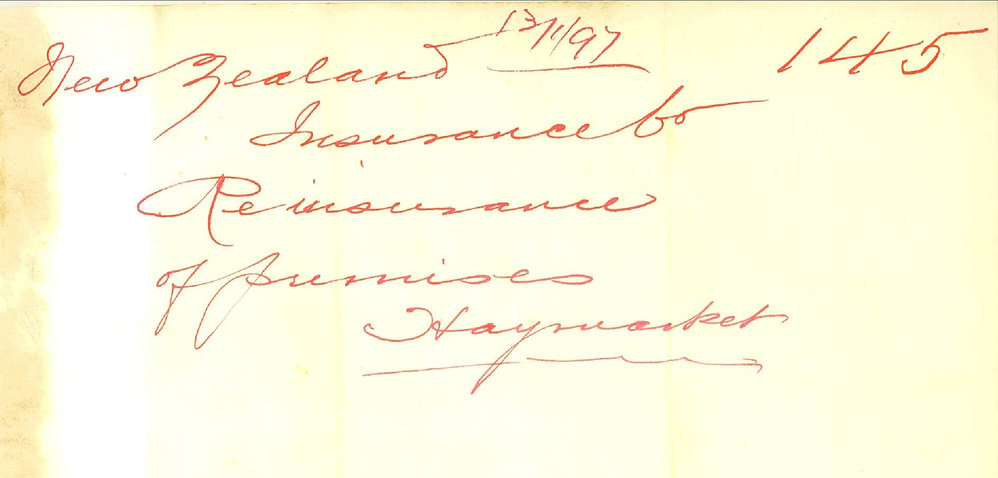 New Zealand 13/1/97 145
Insurance Co
Reinsurance
of premises
Haymarket